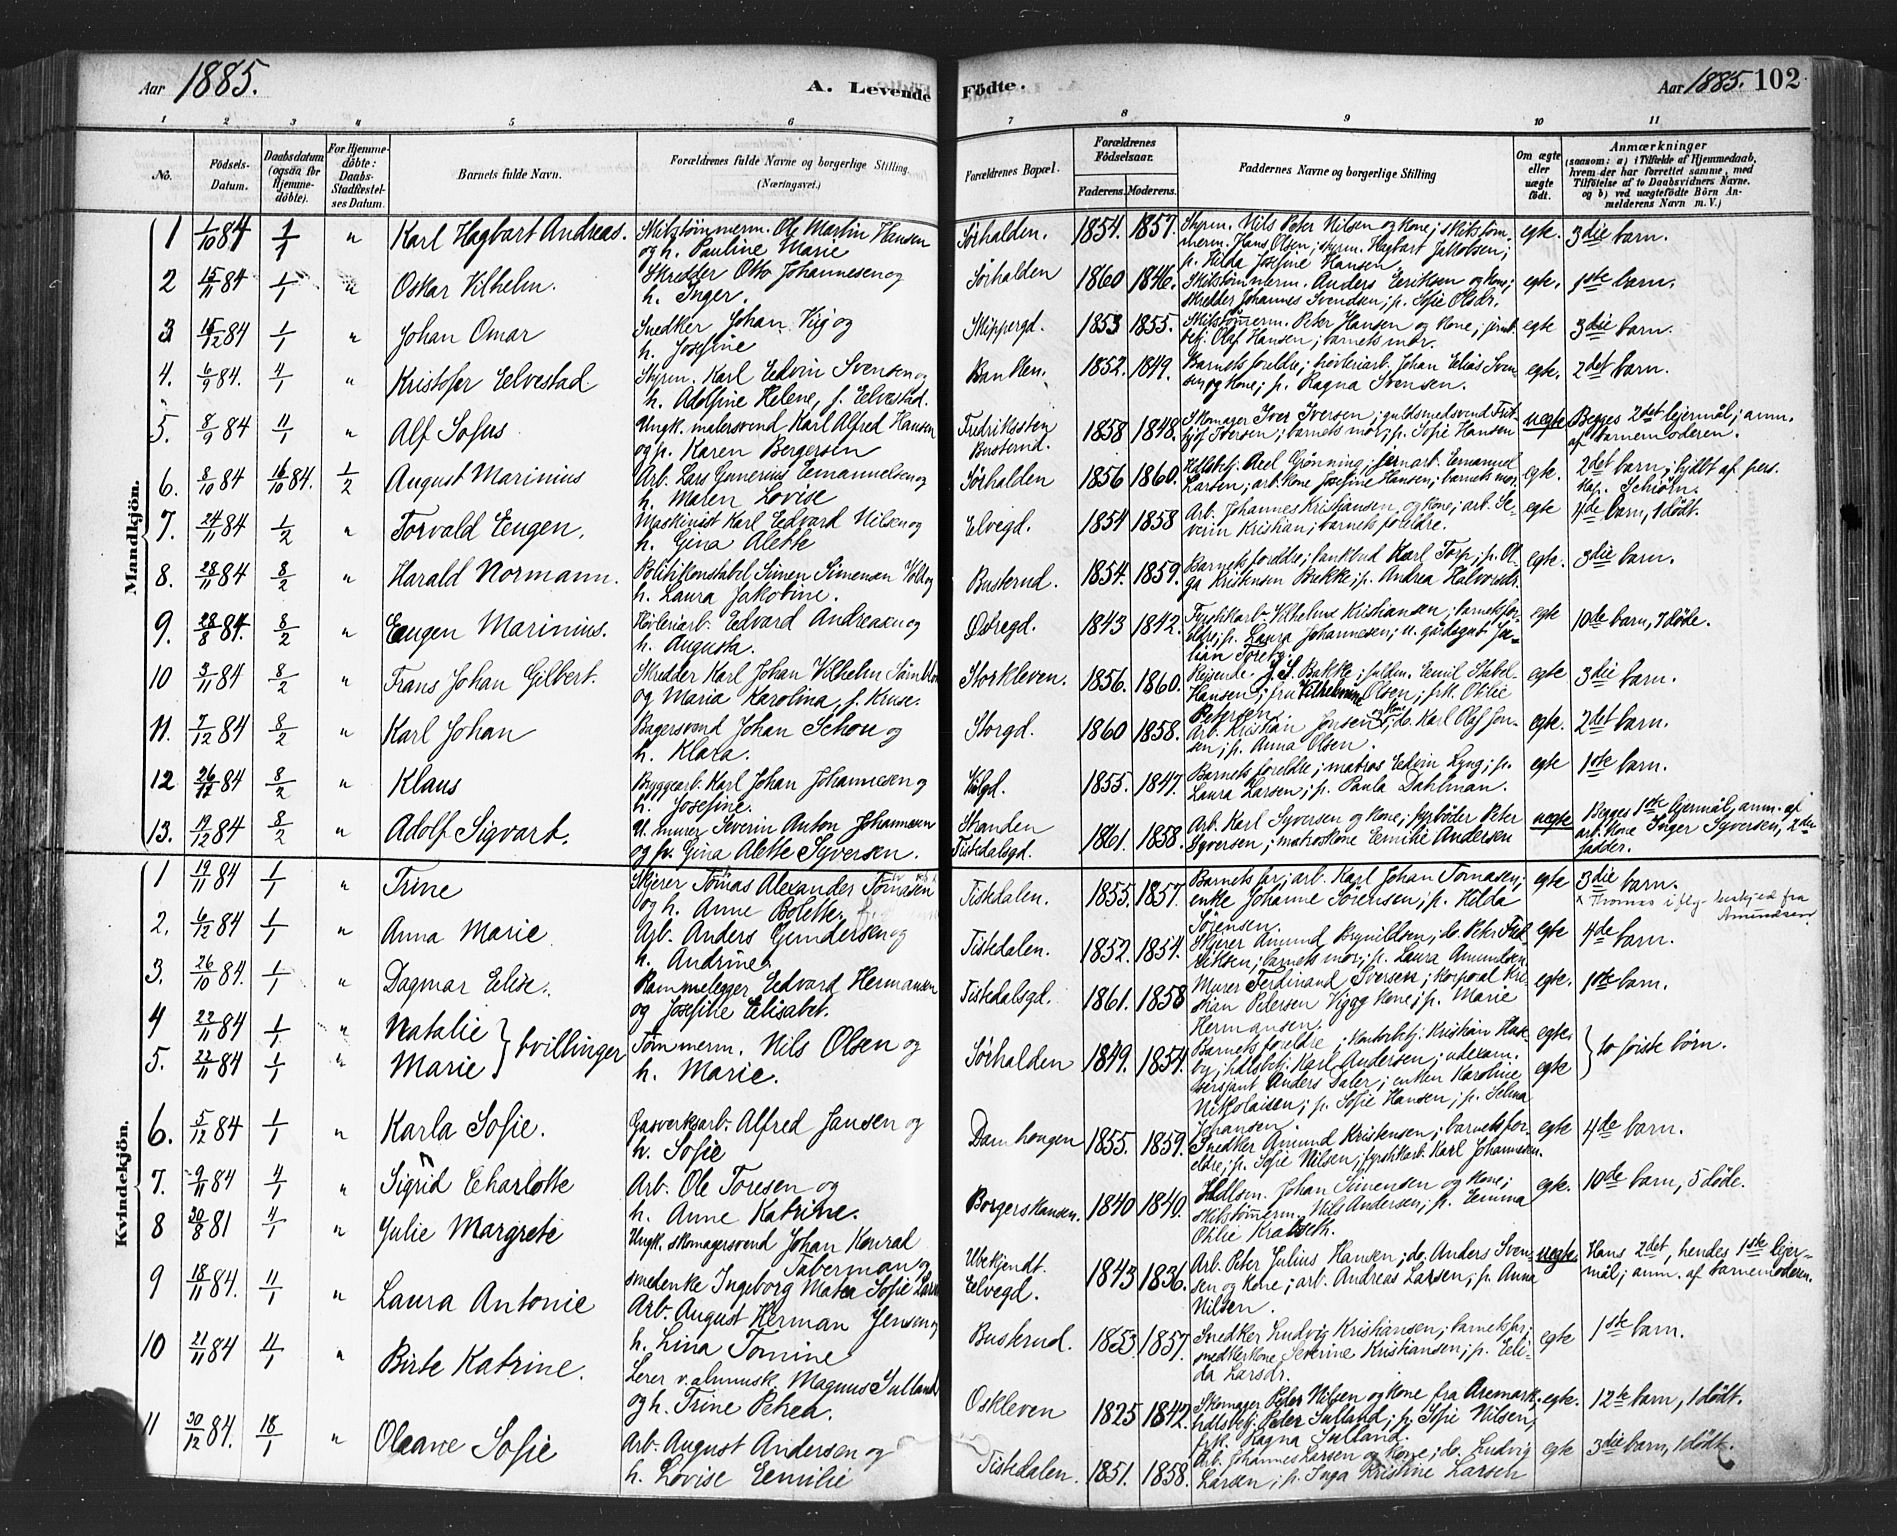 Aar 1885.
A. Levende Födte.
Aar 1885. 102
1 2 3 4 5 6 7 8 9 10 11
No.
Födsels-Datum.
Daabsdatum (ogsaa för Hjemme-döbte).
For Hjemme-döbte: Daabs-Stadfæstel-ses Datum.
Barnets fulde Navn.
Forældrenes fulde Navne og borgerlige Stilling (Næringsvei.)
Forældrenes Bopæl.
Forældrenes Födselsaar.
Faderens. Moderens.
Faddernes Navne og borgerlige Stilling
Om ægte eller uægte födt.
Anmærkninger
(saasom: a) i Tilfælde af Hjemmedaab, hvem der har forrettet samme, med Tilföielse af to Daabsvidners Navne. og b) ved uægtefödte Börn Anmelderens Navn m. V.)
Mandkjön.
1 1/10 84 1/1 " Karl Hagbart Andreas. Skibstömmerm. Ole Martin Hansen og h. Pauline Marie Sörhalden. 1854. 1857. Styrm. Nils Peter Nilsen og Kone; skibstömmerm. Hans Olsen; styrm. Hagbart Jakobsen; p. Hilda Josefine Hansen. egte. 3die barn.
2 15/11 84 1/1 " Oskar Vilhelm. Skredder Otto Johannesen og h. Inger. Sörhalden 1860 1846. Skibstömmerm. Anders Eriksen og kone; skredder Johannes Svendsen; p. Sofie Olsdr. egte. 1ste barn.
3 15/12 84 1/1 " Johan Omar Snedker Johan Viig og h. Josefine Skippergd. 1853 1855. Skibstömmerm. Peter Hansen og Kone; Olaf Hansen; barnets mor. egte 3die barn.
4. 6/9 84. 4/1 " Kristofer Elvestad Styrm. Karl Edvin Svensen og h. Adolfine Helene, f. Elvestad. Banken. 1852. 1849. Barnets foreldre; hövleriarb. Johan Elias Svensen og Kone; p. Ragna Svensen. egte. 2det barn.
5. 8/9 84 11/1 " Alf Sofus Ungk. malersvend Karl Alfred Hansen og p. Karen Bergersen Fredriksten Busterud. 1858 1848. Skomager Iver Iversen; guldsmedsvend Fritjof Iversen; barnets mor; p. Sofie Hansen uegte Begges 2det lejermål; anm. af barnemoderen.
6. 8/10 84 16/10 84. 1/2 August Marinius Arb. Lars Gunerius Emanuelsen og h. Maren Lovise Sörhalden 1856 1860. Grönning; Emanuel Larsen; arb. kone Josefine Hansen; barnets mor. egte. 2det barn; hjdbt af pers. Kap. Schiörn.
7. 24/11 84 1/2 " Torvald Eugen. Maskinist Karl Edvard Nilsen og h. Gina Alette Elvegd. 1854 1858 Arb. Johannes Kristiansen og Kone; arb. Severin Kristian; barnets foreldre. egte 4de barn, 1 dödt.
8. 28/11 84 8/2 " Harald Normann. Politikonstabel Simen Simensen Vold og h. Laura Jakobine. Busterud. 1854. 1859. Barnets foreldre; Karl Torp; p. Olga Kristensen Bakke; p. Andrea Halvorsdr. egte. 3die barn.
9. 28/8 84. 8/2 " Eugen Marinius. Hövleriarb. Edvard Andreasen og h. Augusta. Östregd. 1843 1842. Fyrstikarb. Vilhelm Kristiansen; barnets foreldre; p. Laura Johannesen; Julian Toreby. egte 10de barn, 7 döde.
10 3/11 84 8/2 " Frans Johan Gilbert. Skredder Karl Johan Vilhelm og Maria Karolina, f. Kruse. Storkleven. 1856. 1860. Rejsende J. S. Bakke; Emil Hansen; fru Vilhelmine Olsen; frk. Otilie Petersen. egte 3die barn.
11. 7/12 84 8/2 " Karl Johan Bagersvend Johan Schou og h. Klara. Storgd. 1860 1858. Arb. Kristian Jensen og Kone; do. Karl Olaf Jensen; p. Anna Olsen. egte. 2det barn.
12 26/12 84 8/2 " Klaus Byggearb. Karl Johan Johannesen og h. Josefine. 1855. 1847. Barnets foreldre; matros Edvin Lyng; p. Laura Larsen; p. Paula Dahlman. egte 1ste barn.
13. 19/12 84 8/2 " Adolf Sigvart. U. murer Severin Anton Johannesen og p. Gina Alette Syversen. Stranden Tistedalsgd. 1861. 1858. Arb. Karl Syversen og kone; fyrböder Peter Syversen; matroskone Emilie Andersen uegte Begges 1ste lejermål, anm. af arb. kone Inger Syversen, 2den fadder.
Kvindekjön.
1 19/11 84 1/1 " Trine Skjærer Tomas Alexander Tomasen og h. Anne Bolette. Tistedalen. 1855. 1857. Barnets far; arb. Karl Johan Tomasen; enke Johanne Sörensen; p. Hilda Sörensen. egte 3die barn.
Thomas iflg. beskjed fra Amundsen
2. 6/12 84 1/1 " Anna Marie Arb. Anders Gundersen og h. Andrine. Tistedalen. 1852. 1854. Skjærer Amund Brynildsen; do. Peter Fredriksen; barnets mor; p. Laura Amundsen egte 4de barn.
3. 26/10 84. 1/1 " Dagmar Elise. Rammelegger Edvard Hermansen og Josefine Elisabet. Tistedalsgd. 1861. 1858 Murer Ferdinand Iversen; korporal Kristian Petersen Vigg kone; p. Marie Hermansen. egte. 1ste barn.
4 22/11 84 1/1 " Natalie
5. 22/11 84 1/1 " Marie } tvillinger Tömmerm. Nils Olsen og h. Marie. Sörhalden 1849. 1854. Barnets foreldre; kontorbetj. Kristian; Karl Andersen; udexam. sersjant Anders Daler; enken Karoline Nikolaisen; p. Sofie Hansen; p. Selma Johansen. egte. egte } to förste börn.
6. 5/12 84 1/1 " Karla Sofie. Gasverksarb. Alfred Jansen og h. Sofie Damhaugen 1855. 1859. Snedker Amund Kristensen; barnets foreldre; p. Sofie Nilsen; fyrstikarb. Karl Johannesen. egte 4de barn.
7. 9/11 84 4/1 " Sigrid Charlotte Arb. Ole Toresen og h. Anne Katrine. Borgerskansen. 1840 1840. Johan Simensen og Kone; skibstömmerm. Nils Andersen; p. Emma Otilie Krabseth. egte. 10de barn, 5 döde.
8 30/8 81 4/1 " Julie Margrete Ungk. skomagersvend Johan Konrad Taberman og smedenke Ingeborg Matea Sofie Larsen Ubekjendt. Elvegd. 1843 1836. Arb. Peter Julius Hansen; do. Anders Svensen og Kone; arb. Andreas Larsen; p. Anna Nilsen. uegte. Hans 2det, hendes 1ste lejermål; anm. af barnemoderen.
9 18/11 84. 11/1 " Laura Antonie Arb. August Herman Jensen og h. Lina Tomine Busterud. 1853. 1857. Snedker Ludvig Kristiansen; barnets far; snedkerkone Severine Kristiansen; p. Elida Larsdr. egte 1ste barn.
10 21/11 84 11/1 " Birte Katrine. Lerer v. almuesk. Magnus Sulland og h. Trine Petrea. Oskleven 1825 1842. Skomager Peder Nilsen og Kone fra Aremark; Peder Sulland; p. Sofie Nilsen, frk. Ragna Sulland. egte. 12te barn, 1 dödt.
11 30/12 84. 18/1 " Oleane Sofie Arb. August Andersen og h. Lovise Emilie Tistedalen. 1851. 1858. Arb. Johannes Larsen og Kone; do. Ludvig Larsen; p. Inga Kristine Larsen egte 3die barn, 1 dödt.